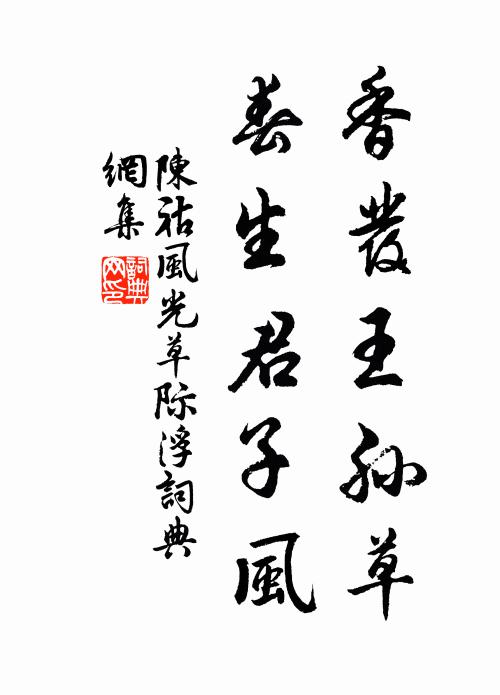 香發王孙草
春生君子風
陳祜風光草际浮詞典
網集
詞典
网印